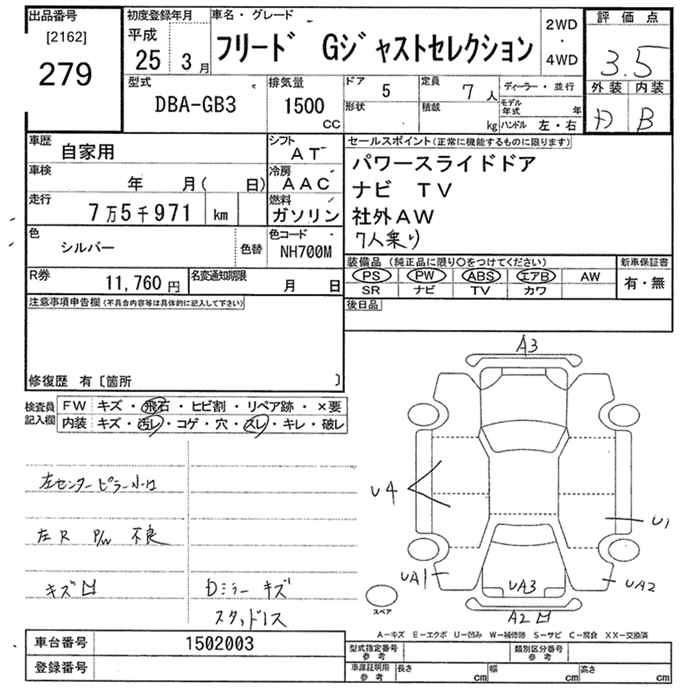 出品番号
[2162]
279
初度登録年月
平成
25 3月
車名・グレード
フリード Gジャストセレクション
2WD
・
4WD
評価点
3.5
外装 内装
B
型式
DBA-GB3
排気量
1500
CC
ドア
5
形状
定員
7人
積載
kg
ディーラー・並行
モデル年式 年
ハンドル 左・右
車歴
自家用
シフト
AT
車検
年 月( 日)
冷房
AAC
走行
7万5千971 km
燃料
ガソリン
色
シルバー
色替
色コード
NH700M
R券
11,760円
名変通知期限
月 日
セールスポイント(正常に機能するものに限ります)
パワースライドドア
ナビ TV
社外AW
7人乗り
装備品(純正品に限り○をつけてください)
PS PW ABS エアB AW
SR ナビ TV カワ
新車保証書
有・無
後日品
注意事項申告欄(不具合内容等は具体的に記入して下さい)
修復歴 有〔箇所 〕
検査員
記入欄
FW キズ・飛石・ヒビ割・リペア跡・×要
内装 キズ・汚レ・コゲ・穴・スレ・キレ・破レ
左センターピラー小凹
左R P/W 不良
キズ凹
Dミラーキズ
スタッドレス
A3
U4
U1
UA1
UA3
UA2
A2凹
スペア
A-キズ E-エクボ U-凹み W-補修跡 S-サビ C-腐食 XX-交換済
車台番号
1502003
登録番号
型式指定番号
参考
類別区分番号
参考
車庫証明用
参考
長さ cm
幅 cm
高さ cm